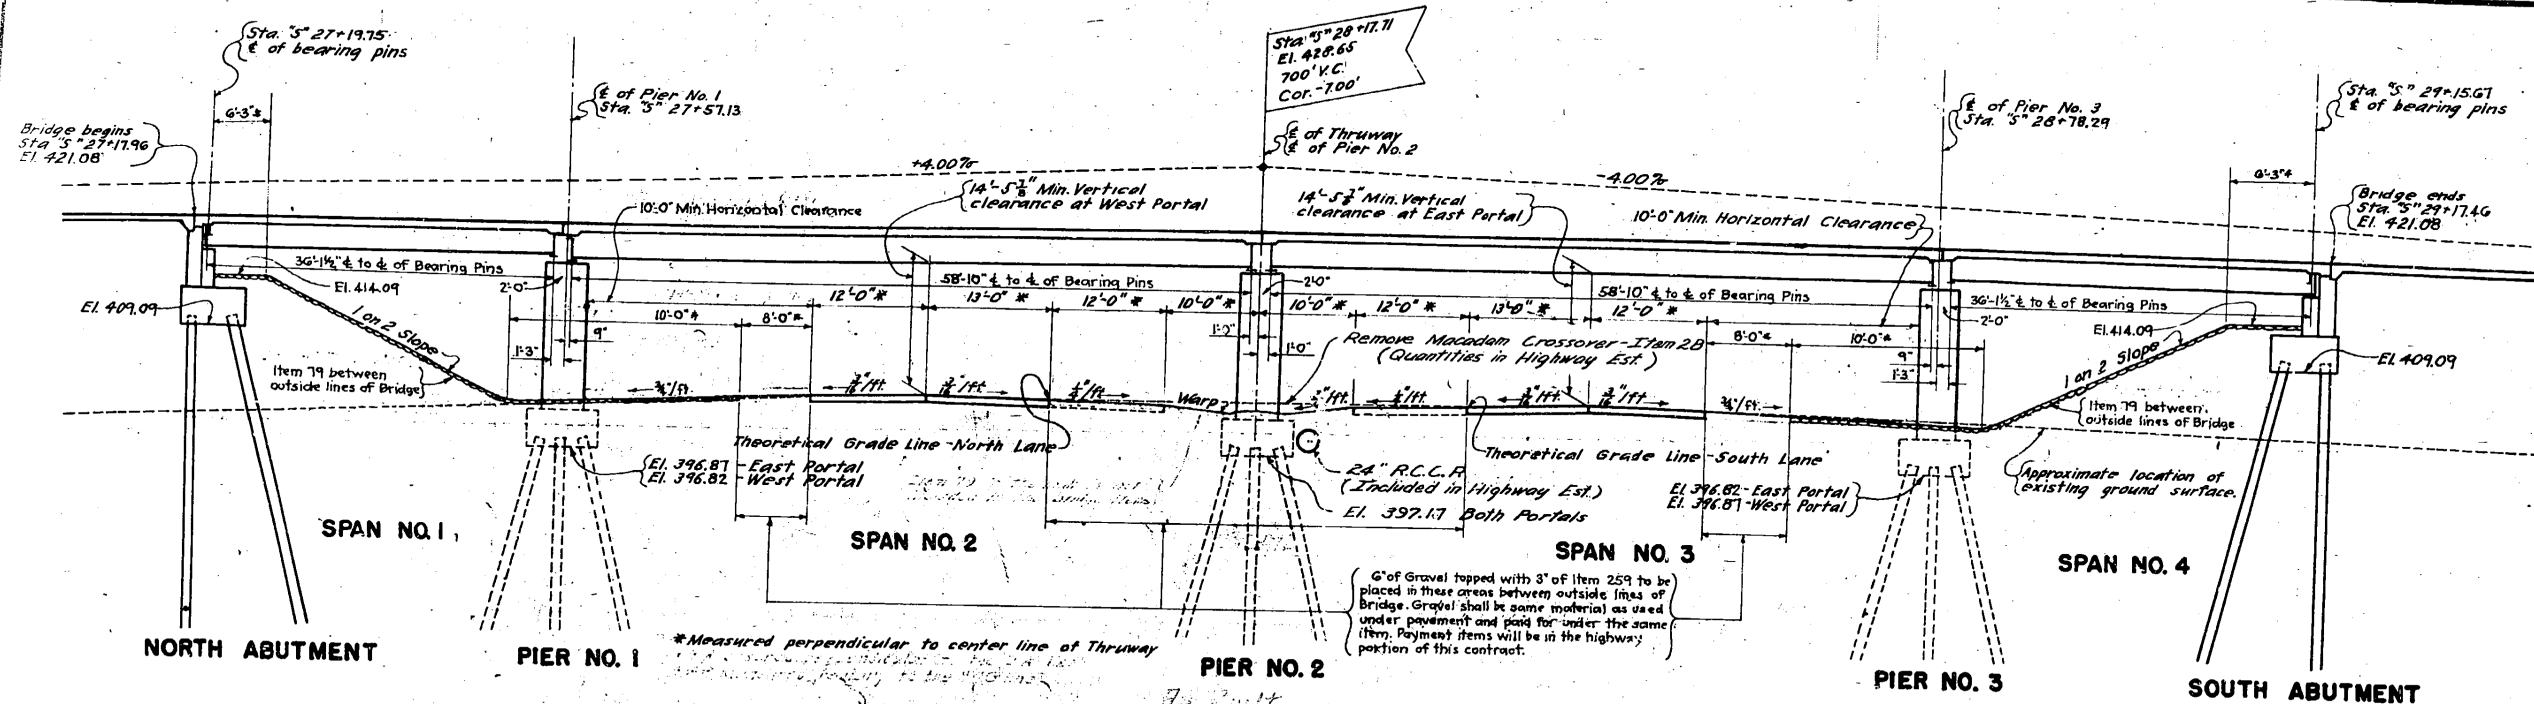 Sta. "S" 27+19.75
℄ of bearing pins
6'-3"±
Bridge begins
Sta "S" 27+17.96
El. 421.08
℄ of Pier No. 1
Sta. "S" 27+57.13
Sta. "S" 28+17.71
El. 428.65
700' V.C.
Cor. -7.00'
℄ of Thruway
℄ of Pier No. 2
℄ of Pier No. 3
Sta. "S" 28+78.29
Sta. "S" 29+15.67
℄ of bearing pins
6'-3"±
Bridge ends
Sta. "S" 29+17.46
El. 421.08
+4.00%
-4.00%
10'-0" Min. Horizontal Clearance
14'-5⅞" Min. Vertical
clearance at West Portal
14'-5⅞" Min. Vertical
clearance at East Portal
10'-0" Min. Horizontal Clearance
36'-1½" ℄ to ℄ of Bearing Pins
58'-10" ℄ to ℄ of Bearing Pins
58'-10" ℄ to ℄ of Bearing Pins
36'-1½" ℄ to ℄ of Bearing Pins
El. 409.09
El. 414.09
1 on 2 Slope
Item 79 between
outside lines of Bridge
2'-0"
10'-0"*
8'-0"*
12'-0"*
13'-0"*
12'-0"*
10'-0"*
2'-0"
10'-0"*
12'-0"*
13'-0"*
12'-0"*
8'-0"*
10'-0"*
2'-0"
9"
1'-3"
1'-0"
1'-0"
9"
1'-3"
El. 414.09
1 on 2 Slope
El. 409.09
Item 79 between
outside lines of Bridge
Remove Macadam Crossover-Item 2B
(Quantities in Highway Est.)
¾"/ft.
3/16"/ft.
3/16"/ft.
¼"/ft.
Warp
¼"/ft.
3/16"/ft.
3/16"/ft.
¾"/ft.
Theoretical Grade Line-North Lane
Theoretical Grade Line-South Lane
El. 396.87-East Portal
El. 396.82-West Portal
24" R.C.C.P.
(Included in Highway Est.)
El. 397.17 Both Portals
El. 396.82-East Portal
El. 396.87-West Portal
Approximate location of
existing ground surface.
SPAN NO. 1
SPAN NO. 2
SPAN NO. 3
SPAN NO. 4
6" of Gravel topped with 3" of Item 259 to be
placed in these areas between outside lines of
Bridge. Gravel shall be same material as used
under pavement and paid for under the same
item. Payment items will be in the highway
portion of this contract.
*Measured perpendicular to center line of Thruway
NORTH ABUTMENT
PIER NO. 1
PIER NO. 2
PIER NO. 3
SOUTH ABUTMENT